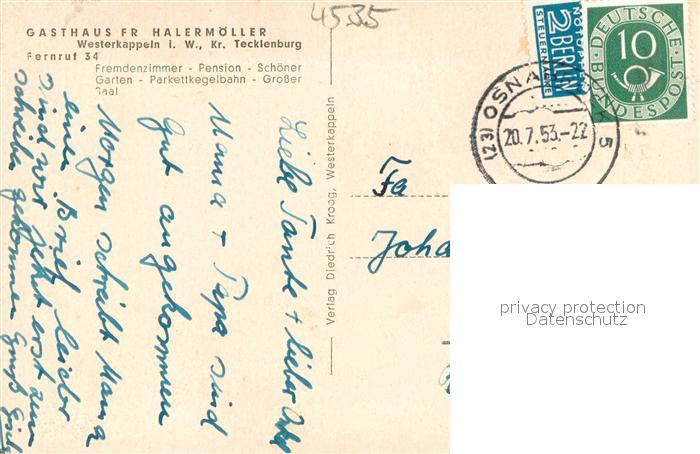 4535
GASTHAUS FR HALERMÖLLER
Westerkappeln i. W., Kr. Tecklenburg
Fernruf 34
Fremdenzimmer - Pension - Schöner
Garten - Parkettkegelbahn - Großer
Saal
Liebe Tante + lieber Onkel
Mama + Papa sind
gut angekommen
Morgen schreibt Mama
einen Brief leider
sind wir jetzt erst zum
schreiben gekommen Gruß
Verlag Diedrich Kroog, Westerkappeln
NOTOPFER
2 BERLIN
STEUERMARKE
DEUTSCHE
BUNDESPOST
10
(23) OSNABRÜCK 5
20.7.53.-22
Fa
Joha
privacy protection
Datenschutz